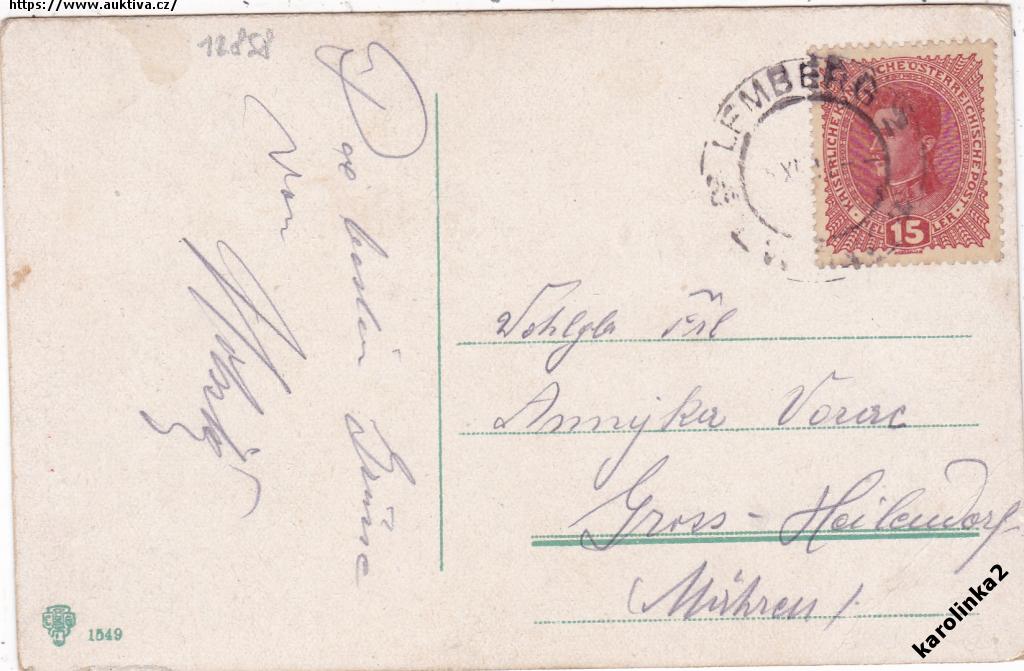 https://www.auktiva.cz/
12858
Die besten Grüsse
von
LEMBERG
KAISERLICHE KÖNIGLICHE ÖSTERREICHISCHE POST
15
HELLER
Wohlgb Frl
Annyka Vorac
Gross-Heilendorf
Mähren
1549
karolinka2